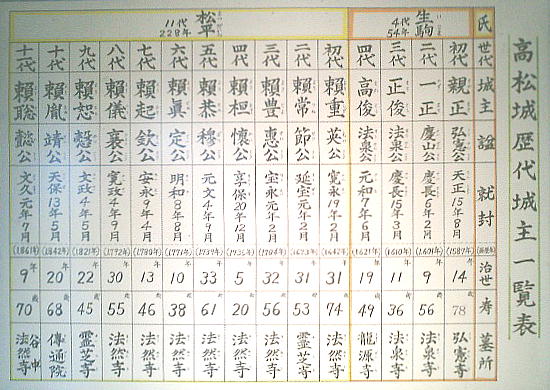 高松城歴代城主一覧表
氏 世代 城主 諡 就封 (西暦年) 治世 寿 墓所
生駒 4代 54年
初代 親正 弘憲公 天正15年8月 (1587年) 14 78 弘憲寺
二代 一正 慶山公 慶長6年2月 (1601年) 9 56 法泉寺
三代 正俊 法泉公 慶長15年3月 (1610年) 11 36 法泉寺
四代 高俊 法泉公 元和7年6月 (1621年) 19 49 龍源寺
松平 11代 228年
初代 賴重 英公 寛永19年2月 (1642年) 31 74 法然寺
二代 賴常 節公 延宝元年2月 (1673年) 31 53 靈芝寺
三代 賴豊 惠公 宝永元年2月 (1704年) 32 56歳 法然寺
四代 賴桓 懷公 享保20年12月 (1736年) 5 20歳 法然寺
五代 賴恭 穆公 元文4年9月 (1739年) 33 61歳 法然寺
六代 賴眞 定公 明和8年8月 (1771年) 10 38歳 法然寺
七代 賴起 欽公 安永9年4月 (1780年) 13 46歳 法然寺
八代 賴儀 襄公 寛政4年9月 (1792年) 30 55歳 法然寺
九代 賴恕 愨公 文政4年5月 (1821年) 22 45歳 靈芝寺
十代 賴胤 靖公 天保13年5月 (1842年) 20年 68歳 傳通院
十一代 賴聡 懿公 文久元年7月 (1861年) 9年 70歳 谷中 法然寺